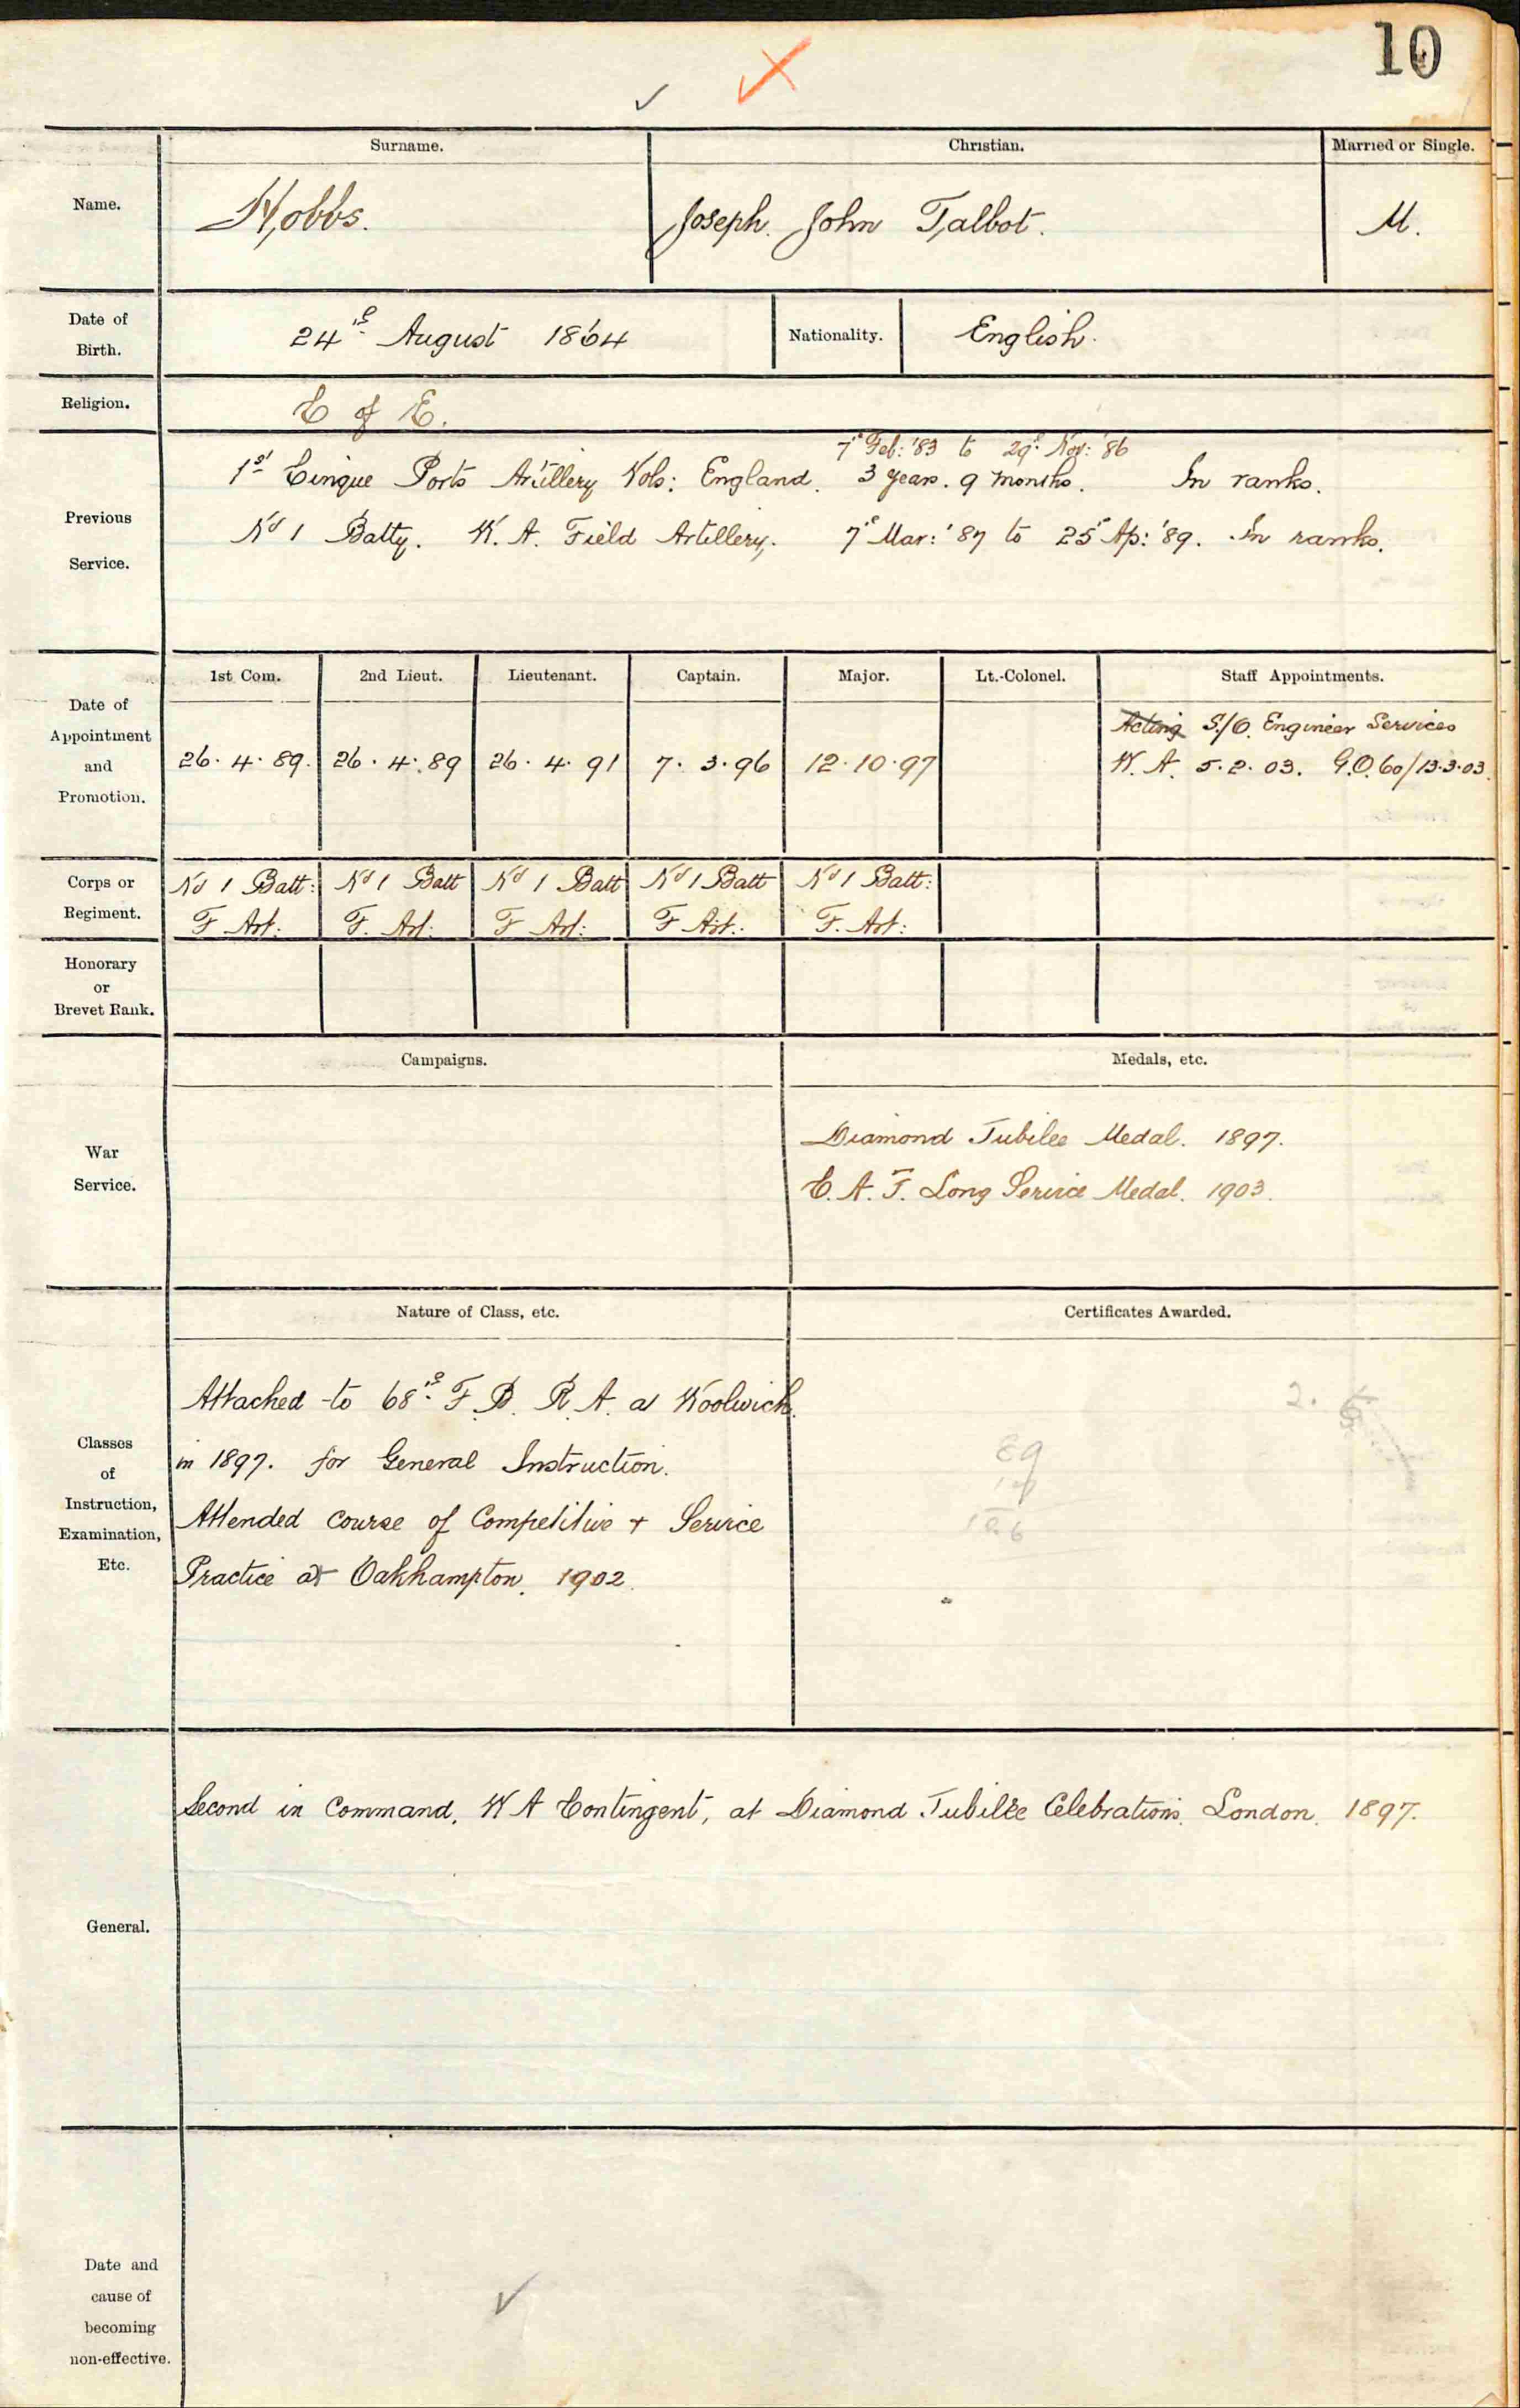 10
Surname.
Christian.
Married or Single.
Name.
Hobbs.
Joseph. John Talbot.
M.
Date of
Birth.
24th August 1864
Nationality.
English.
Religion.
C of E.
Previous
Service.
7th Feb: '83 to 29th Nov: '86
1st Cinque Ports Artillery Vols: England. 3 years. 9 months. In ranks.
No 1 Batty. W. A. Field Artillery. 7th Mar: '87 to 25th Ap: '89. In ranks.
Date of
Appointment
and
Promotion.
1st Com.
2nd Lieut.
Lieutenant.
Captain.
Major.
Lt.-Colonel.
Staff Appointments.
26. 4. 89.
26. 4. 89
26. 4. 91
7. 3. 96
12. 10. 97
Acting S/O. Engineer Services
W. A. 5. 2. 03. G.O. 60/13.3.03.
Corps or
Regiment.
No 1 Batt:
F Art:
No 1 Batt
F. Art:
No 1 Batt
F Art:
No 1 Batt
F Art:
No 1 Batt:
F. Art:
Honorary
or
Brevet Rank.
War
Service.
Campaigns.
Medals, etc.
Diamond Jubilee Medal. 1897.
C. A. F. Long Service Medal. 1903.
Classes
of
Instruction,
Examination,
Etc.
Nature of Class, etc.
Certificates Awarded.
Attached to 68th F. B. R. A. at Woolwich.
in 1897. for General Instruction.
Attended course of Competitive + Service
Practice at Oakhampton. 1902.
89
General.
Second in Command. W A Contingent, at Diamond Jubilee Celebrations. London. 1897.
Date and
cause of
becoming
non-effective.